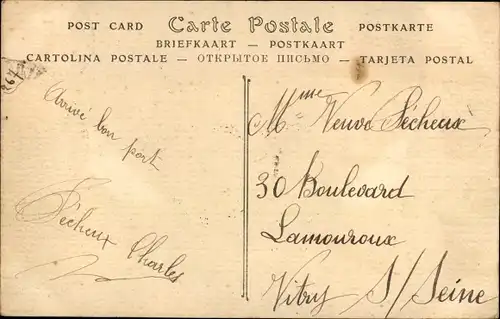 POST CARD Carte Postale POSTKARTE
BRIEFKAART — POSTKAART
CARTOLINA POSTALE — ОТКРЫТОЕ ПИСЬМО — TARJETA POSTAL
Arrivé bon port
Pécheux Charles
Mme Veuve Pécheux
30 Boulevard
Lamouroux
Vitry S/Seine